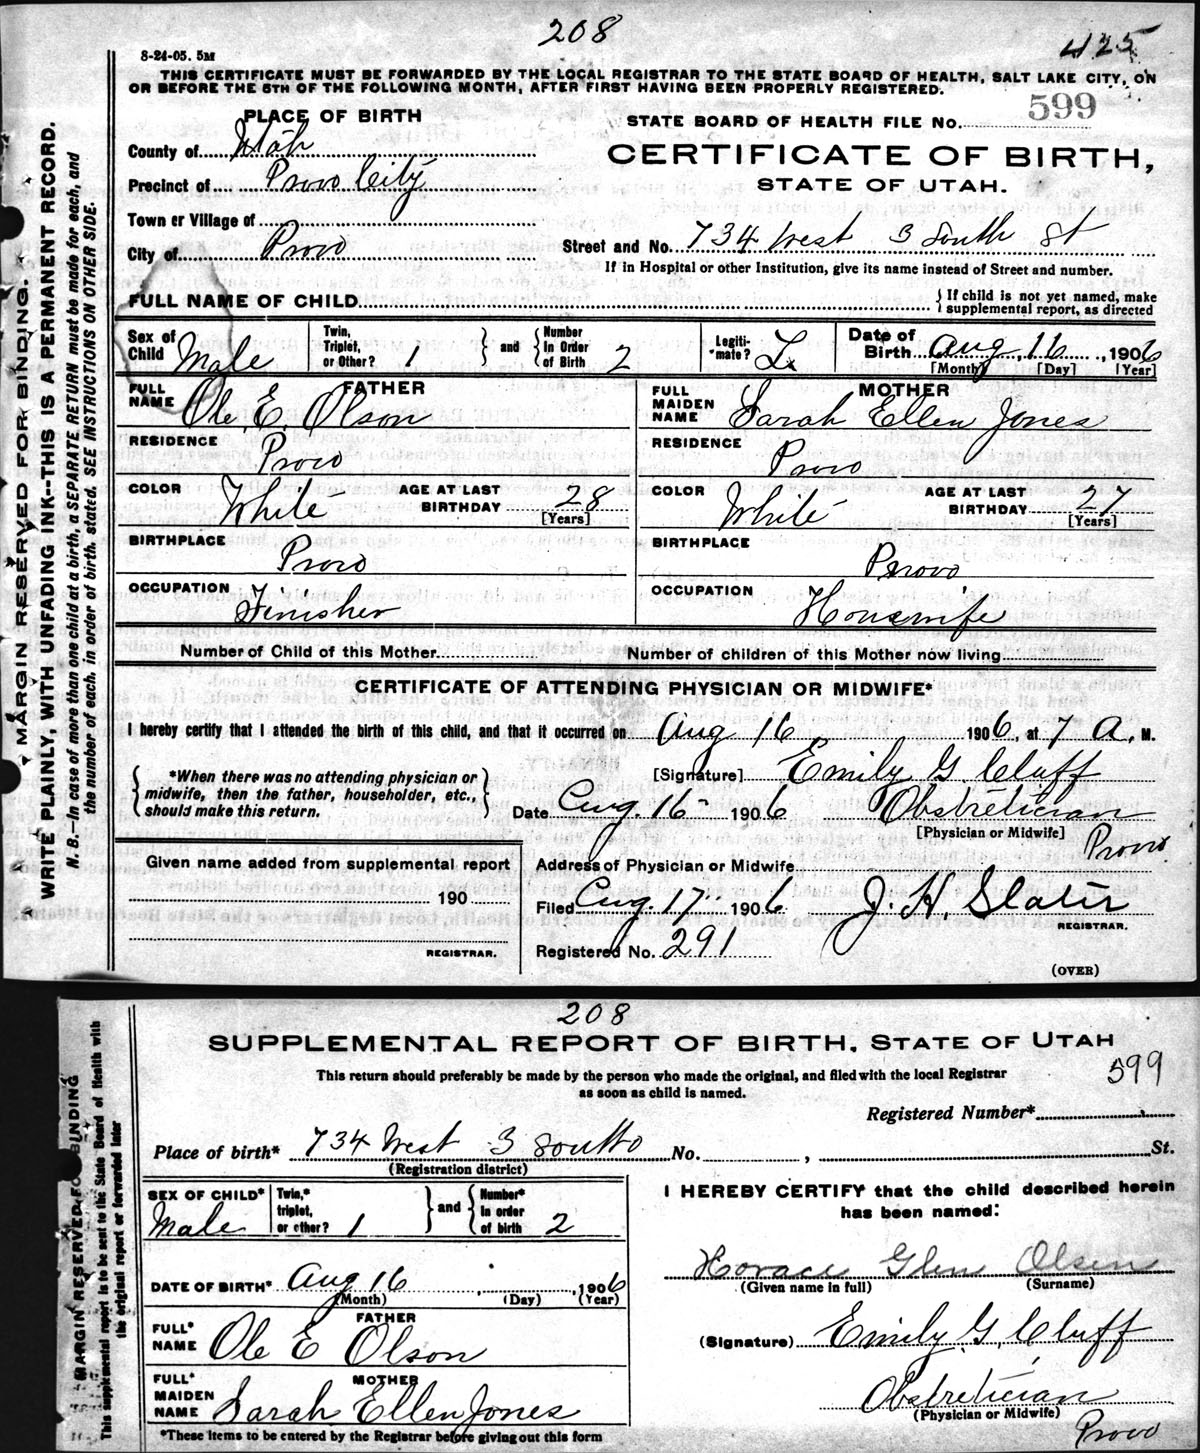 208
425
8-24-05. 5M
THIS CERTIFICATE MUST BE FORWARDED BY THE LOCAL REGISTRAR TO THE STATE BOARD OF HEALTH, SALT LAKE CITY, ON
OR BEFORE THE 5TH OF THE FOLLOWING MONTH, AFTER FIRST HAVING BEEN PROPERLY REGISTERED.
MARGIN RESERVED FOR BINDING.
WRITE PLAINLY, WITH UNFADING INK--THIS IS A PERMANENT RECORD.
N. B.—In case of more than one child at a birth, a SEPARATE RETURN must be made for each, and
the number of each, in order of birth, stated. SEE INSTRUCTIONS ON OTHER SIDE.
PLACE OF BIRTH
STATE BOARD OF HEALTH FILE No. 599
County of Utah
CERTIFICATE OF BIRTH,
Precinct of Provo City
STATE OF UTAH.
Town or Village of
City of Provo
Street and No. 734 West 3 South St
If in Hospital or other Institution, give its name instead of Street and number.
FULL NAME OF CHILD
{ If child is not yet named, make supplemental report, as directed
Sex of Child Male
Twin, Triplet, or Other? 1 } and { Number In Order of Birth 2
Legiti-mate? L.
Date of Birth Aug, 16, 1906
[Month] [Day] [Year]
FATHER
FULL NAME Ole. E. Olson
RESIDENCE Provo
COLOR White AGE AT LAST BIRTHDAY 28
[Years]
BIRTHPLACE Provo
OCCUPATION Finisher
MOTHER
FULL MAIDEN NAME Sarah Ellen Jones
RESIDENCE Provo
COLOR White AGE AT LAST BIRTHDAY 27
[Years]
BIRTHPLACE Provo
OCCUPATION Housewife
Number of Child of this Mother Number of children of this Mother now living
CERTIFICATE OF ATTENDING PHYSICIAN OR MIDWIFE*
I hereby certify that I attended the birth of this child, and that it occurred on Aug 16 1906, at 7 A. M.
{ *When there was no attending physician or midwife, then the father, householder, etc., should make this return. }
[Signature] Emily G. Cluff
Date Aug. 16 - 1906 Obstretician
[Physician or Midwife]
Provo
Given name added from supplemental report
190
REGISTRAR.
Address of Physician or Midwife
Filed Aug. 17" 1906 J. H. Slater
REGISTRAR.
Registered No. 291
(OVER)
208
SUPPLEMENTAL REPORT OF BIRTH, STATE OF UTAH
This return should preferably be made by the person who made the original, and filed with the local Registrar
as soon as child is named.
599
MARGIN RESERVED FOR BINDING
This supplemental report is to be sent to the State Board of Health with
the original report or forwarded later
Registered Number*
Place of birth* 734 West 3 South No. , St.
(Registration district)
SEX OF CHILD* Male
Twin,* triplet, or other? 1 } and { Number* In order of birth 2
DATE OF BIRTH* Aug 16 , 1906
(Month) (Day) (Year)
FATHER
FULL* NAME Ole E Olson
MOTHER
FULL* MAIDEN NAME Sarah Ellen Jones
*These items to be entered by the Registrar before giving out this form
I HEREBY CERTIFY that the child described herein
has been named:
Horace Glen Olsen
(Given name in full) (Surname)
(Signature) Emily G. Cluff
Obstretician
(Physician or Midwife)
Provo